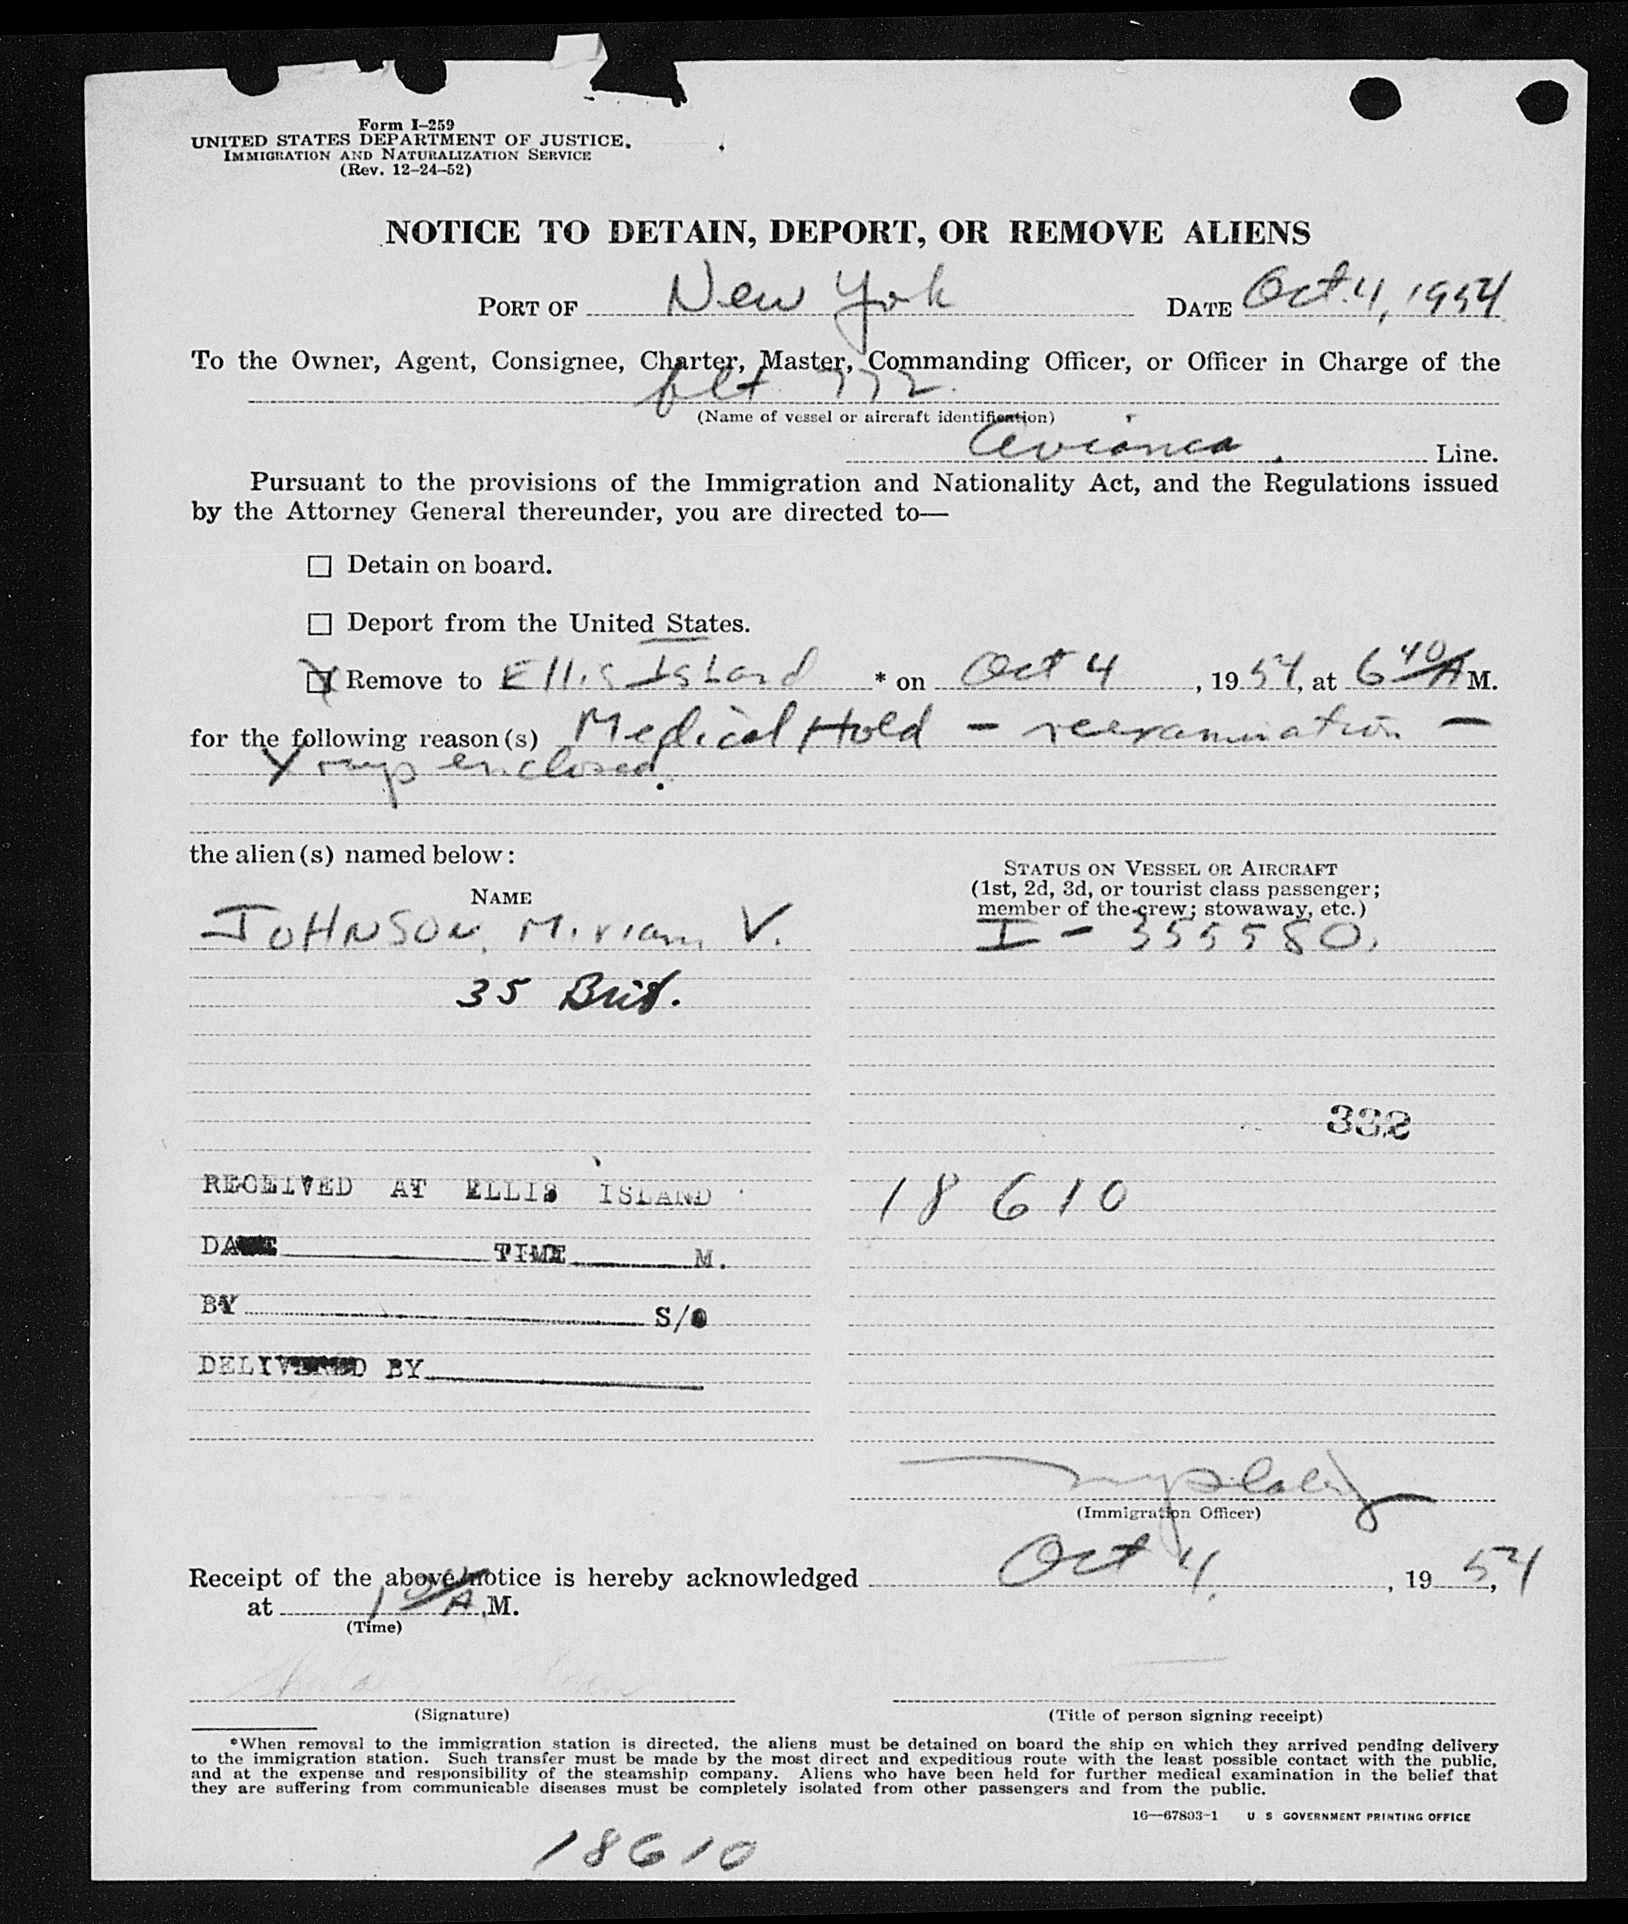 Form I-259
UNITED STATES DEPARTMENT OF JUSTICE.
IMMIGRATION AND NATURALIZATION SERVICE
(Rev. 12-24-52)
NOTICE TO DETAIN, DEPORT, OR REMOVE ALIENS
PORT OF New York DATE Oct. 4, 1954
To the Owner, Agent, Consignee, Charter, Master, Commanding Officer, or Officer in Charge of the
flt 772
(Name of vessel or aircraft identification)
Avianca Line.
Pursuant to the provisions of the Immigration and Nationality Act, and the Regulations issued
by the Attorney General thereunder, you are directed to—
Detain on board.
Deport from the United States.
X Remove to Ellis Island * on Oct 4, 1954, at 6 40 A M.
for the following reason(s) Medical Hold - reexamination -
X rays enclosed.
the alien(s) named below:
NAME
STATUS ON VESSEL OR AIRCRAFT
(1st, 2d, 3d, or tourist class passenger;
member of the crew; stowaway, etc.)
JOHNSON, Miriam V. I-355580.
35 Brit.
332
RECEIVED AT ELLIS ISLAND
18610
DATE TIME M.
BY S/O
DELIVERED BY
(Immigration Officer)
Receipt of the above notice is hereby acknowledged Oct 4, 1954,
at A.M.
(Time)
(Signature) (Title of person signing receipt)
*When removal to the immigration station is directed, the aliens must be detained on board the ship on which they arrived pending delivery
to the immigration station. Such transfer must be made by the most direct and expeditious route with the least possible contact with the public,
and at the expense and responsibility of the steamship company. Aliens who have been held for further medical examination in the belief that
they are suffering from communicable diseases must be completely isolated from other passengers and from the public.
16—67803-1 U S GOVERNMENT PRINTING OFFICE
18610